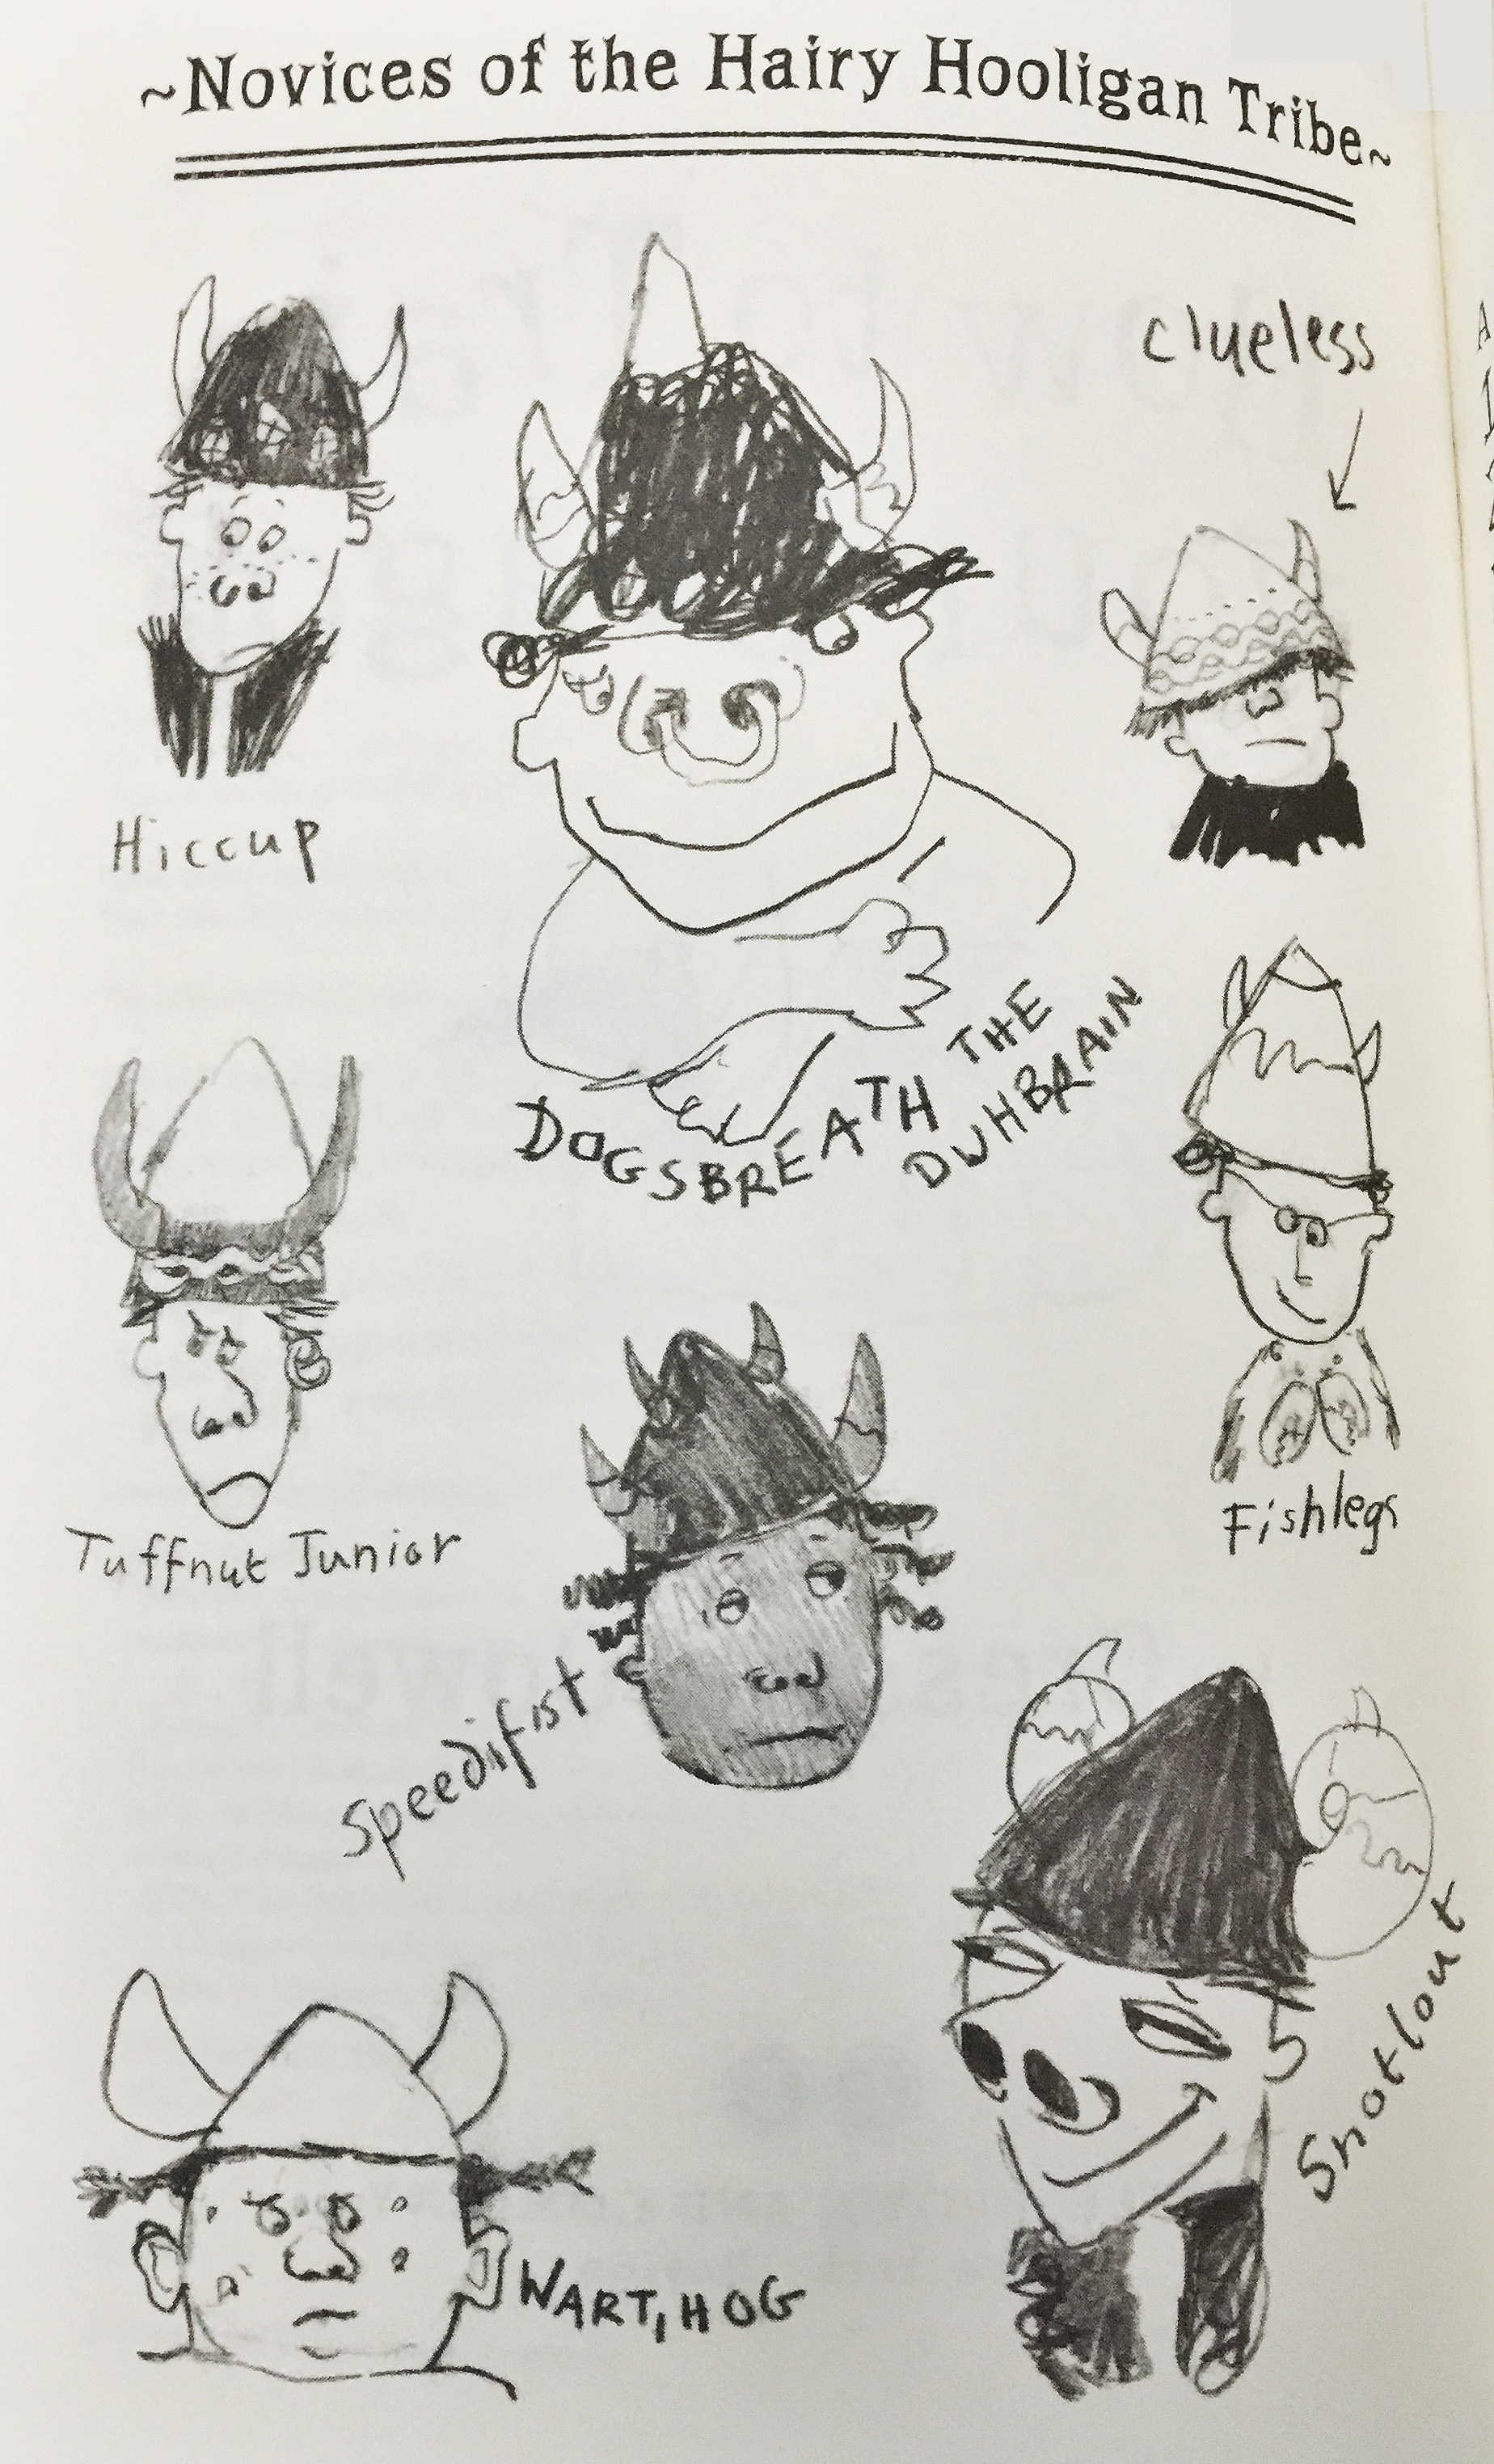 ~Novices of the Hairy Hooligan Tribe~
clueless
Hiccup
DOGSBREATH THE
DUHBRAIN
Tuffnut Junior
Fishlegs
Speedifist
Snotlout
WARTIHOG